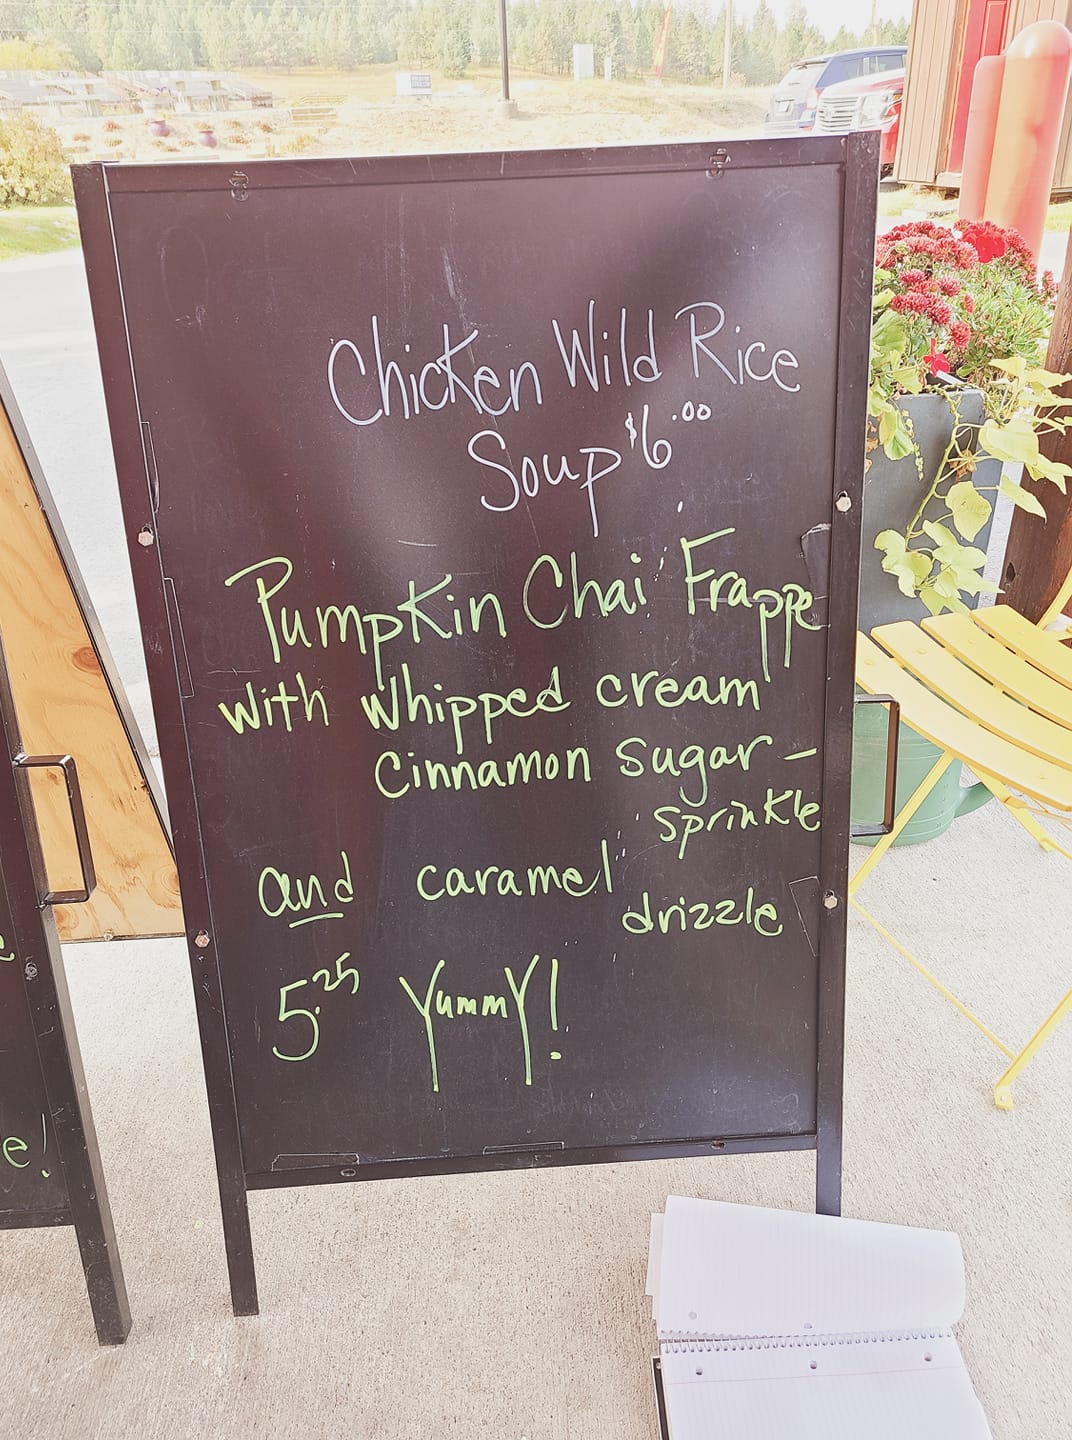 Chicken Wild Rice
Soup $6.00
Pumpkin Chai Frappe
with whipped cream
cinnamon sugar -
sprinkle
and caramel
drizzle
5.25 Yummy!
e!